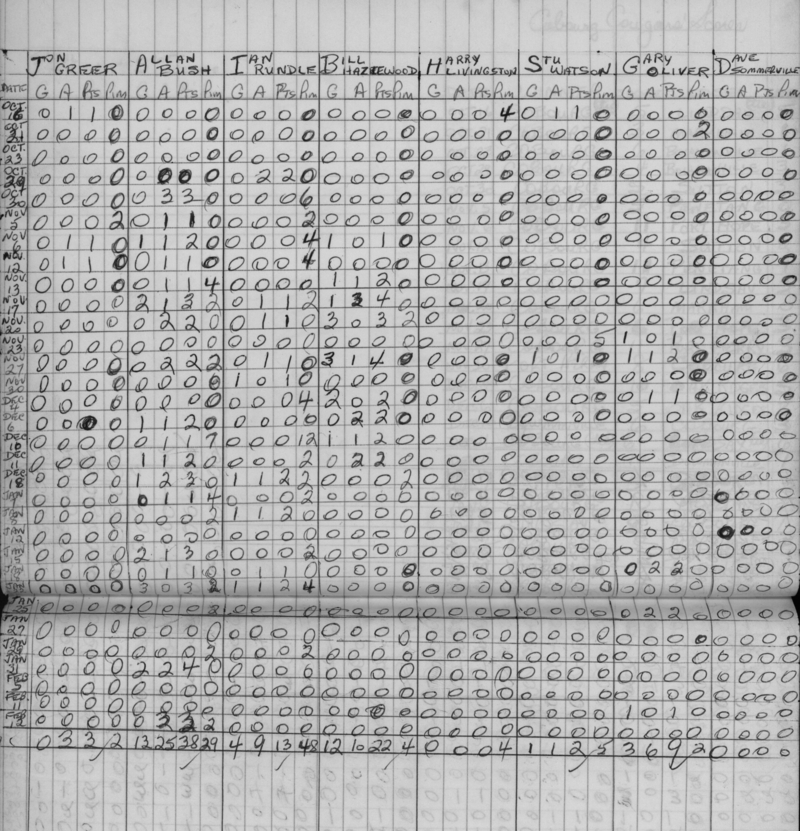 Cobourg Cougars Scores
JON GREER ALLAN BUSH IAN RUNDLE BILL HAZELWOOD HARRY LIVINGSTON STU WATSON GARY OLIVER DAVE SOMMERVILLE
DATE G A Pts Pim G A Pts Pim G A Pts Pim G A Pts Pim G A Pts Pim G A Pts Pim G A Pts Pim G A Pts Pim
OCT 16 0 1 1 0 0 0 0 0 0 0 0 0 0 0 0 0 0 0 0 4 0 1 1 0 0 0 0 0 0 0 0 0
OCT 21 0 0 0 0 0 0 0 0 0 0 0 0 0 0 0 0 0 0 0 0 0 0 0 0 0 0 0 2 0 0 0 0
OCT 23 0 0 0 0 0 0 0 0 0 0 0 0 0 0 0 0 0 0 0 0 0 0 0 0 0 0 0 0 0 0 0 0
OCT 29 0 0 0 0 0 0 0 0 0 2 2 0 0 0 0 0 0 0 0 0 0 0 0 0 0 0 0 0 0 0 0 0
OCT 30 0 0 0 0 0 3 3 0 0 0 0 6 0 0 0 0 0 0 0 0 0 0 0 0 0 0 0 0 0 0 0 0
NOV 0 0 0 2 0 1 1 0 0 0 0 2 0 0 0 0 0 0 0 0 0 0 0 0 0 0 0 0 0 0 0 0
NOV 6 0 1 1 0 1 1 2 0 0 0 0 4 1 0 1 0 0 0 0 0 0 0 0 0 0 0 0 0 0 0 0 0
NOV 12 0 1 1 0 0 1 1 0 0 0 0 4 0 0 0 0 0 0 0 0 0 0 0 0 0 0 0 0 0 0 0 0
NOV 13 0 0 0 0 0 1 1 4 0 0 0 0 1 1 2 0 0 0 0 0 0 0 0 0 0 0 0 0 0 0 0 0
NOV 17 0 0 0 0 2 1 3 2 0 1 1 2 1 3 4 0 0 0 0 0 0 0 0 0 0 0 0 0 0 0 0 0
NOV 20 0 0 0 0 0 2 2 0 0 1 1 0 3 0 3 2 0 0 0 0 0 0 0 0 0 0 0 0 0 0 0 0
NOV 23 0 0 0 0 0 0 0 0 0 0 0 0 0 0 0 0 0 0 0 0 0 0 0 5 1 0 1 0 0 0 0 0
NOV 27 0 0 0 0 0 2 2 2 0 1 1 0 3 1 4 0 0 0 0 0 1 0 1 0 1 1 2 0 0 0 0 0
NOV 30 0 0 0 0 0 0 0 0 1 0 1 0 0 0 0 0 0 0 0 0 0 0 0 0 0 0 0 0 0 0 0 0
DEC 4 0 0 0 0 0 0 0 0 0 0 0 4 2 0 2 0 0 0 0 0 0 0 0 0 0 1 1 0 0 0 0 0
DEC 6 0 0 0 0 1 1 2 0 0 0 0 0 0 2 2 0 0 0 0 0 0 0 0 0 0 0 0 0 0 0 0 0
DEC 10 0 0 0 0 0 1 1 7 0 0 0 12 1 1 2 0 0 0 0 0 0 0 0 0 0 0 0 0 0 0 0 0
DEC 11 0 0 0 0 1 1 2 0 0 0 0 2 0 2 2 0 0 0 0 0 0 0 0 0 0 0 0 0 0 0 0 0
DEC 18 0 0 0 0 1 2 3 0 1 1 2 2 0 0 0 2 0 0 0 0 0 0 0 0 0 0 0 0 0 0 0 0
JAN 0 0 0 0 0 1 1 4 0 0 0 2 0 0 0 0 0 0 0 0 0 0 0 0 0 0 0 0 0 0 0 0
JAN 0 0 0 0 0 0 0 2 1 1 2 0 0 0 0 0 0 0 0 0 0 0 0 0 0 0 0 0 0 0 0 0
JAN 12 0 0 0 0 0 0 0 0 0 0 0 0 0 0 0 0 0 0 0 0 0 0 0 0 0 0 0 0 0 0 0 0
JAN 0 0 0 0 2 1 3 0 0 0 0 2 0 0 0 0 0 0 0 0 0 0 0 0 0 0 0 0 0 0 0 0
0 0 0 0 0 1 1 0 0 1 1 0 0 0 0 0 0 0 0 0 0 0 0 0 0 2 2 0 0 0 0 0
0 0 0 0 3 0 3 2 1 1 2 4 0 0 0 0 0 0 0 0 0 0 0 0 0 0 0 0 0 0 0 0
JAN 0 0 0 0 0 0 0 2 0 0 0 0 0 0 0 0 0 0 0 0 0 0 0 0 0 2 2 0 0 0 0 0
JAN 27 0 0 0 0 0 0 0 0 0 0 0 0 0 0 0 0 0 0 0 0 0 0 0 0 0 0 0 0 0 0 0 0
JAN 0 0 0 0 0 0 0 2 0 0 0 2 0 0 0 0 0 0 0 0 0 0 0 0 0 0 0 0 0 0 0 0
JAN 31 0 0 0 0 2 2 4 0 0 0 0 0 0 0 0 0 0 0 0 0 0 0 0 0 0 0 0 0 0 0 0 0
FEB 0 0 0 0 0 0 0 0 0 0 0 0 0 0 0 0 0 0 0 0 0 0 0 0 0 0 0 0 0 0 0 0
FEB 11 0 0 0 0 0 0 0 0 0 0 0 0 0 0 0 0 0 0 0 0 0 0 0 0 1 0 1 0 0 0 0 0
FEB 12 0 0 0 0 0 3 3 2 0 0 0 0 0 0 0 0 0 0 0 0 0 0 0 0 0 0 0 0 0 0 0 0
0 3 3 2 13 25 38 29 4 9 13 48 12 10 22 4 0 0 0 4 1 1 2 5 3 6 9 2 0 0 0 0